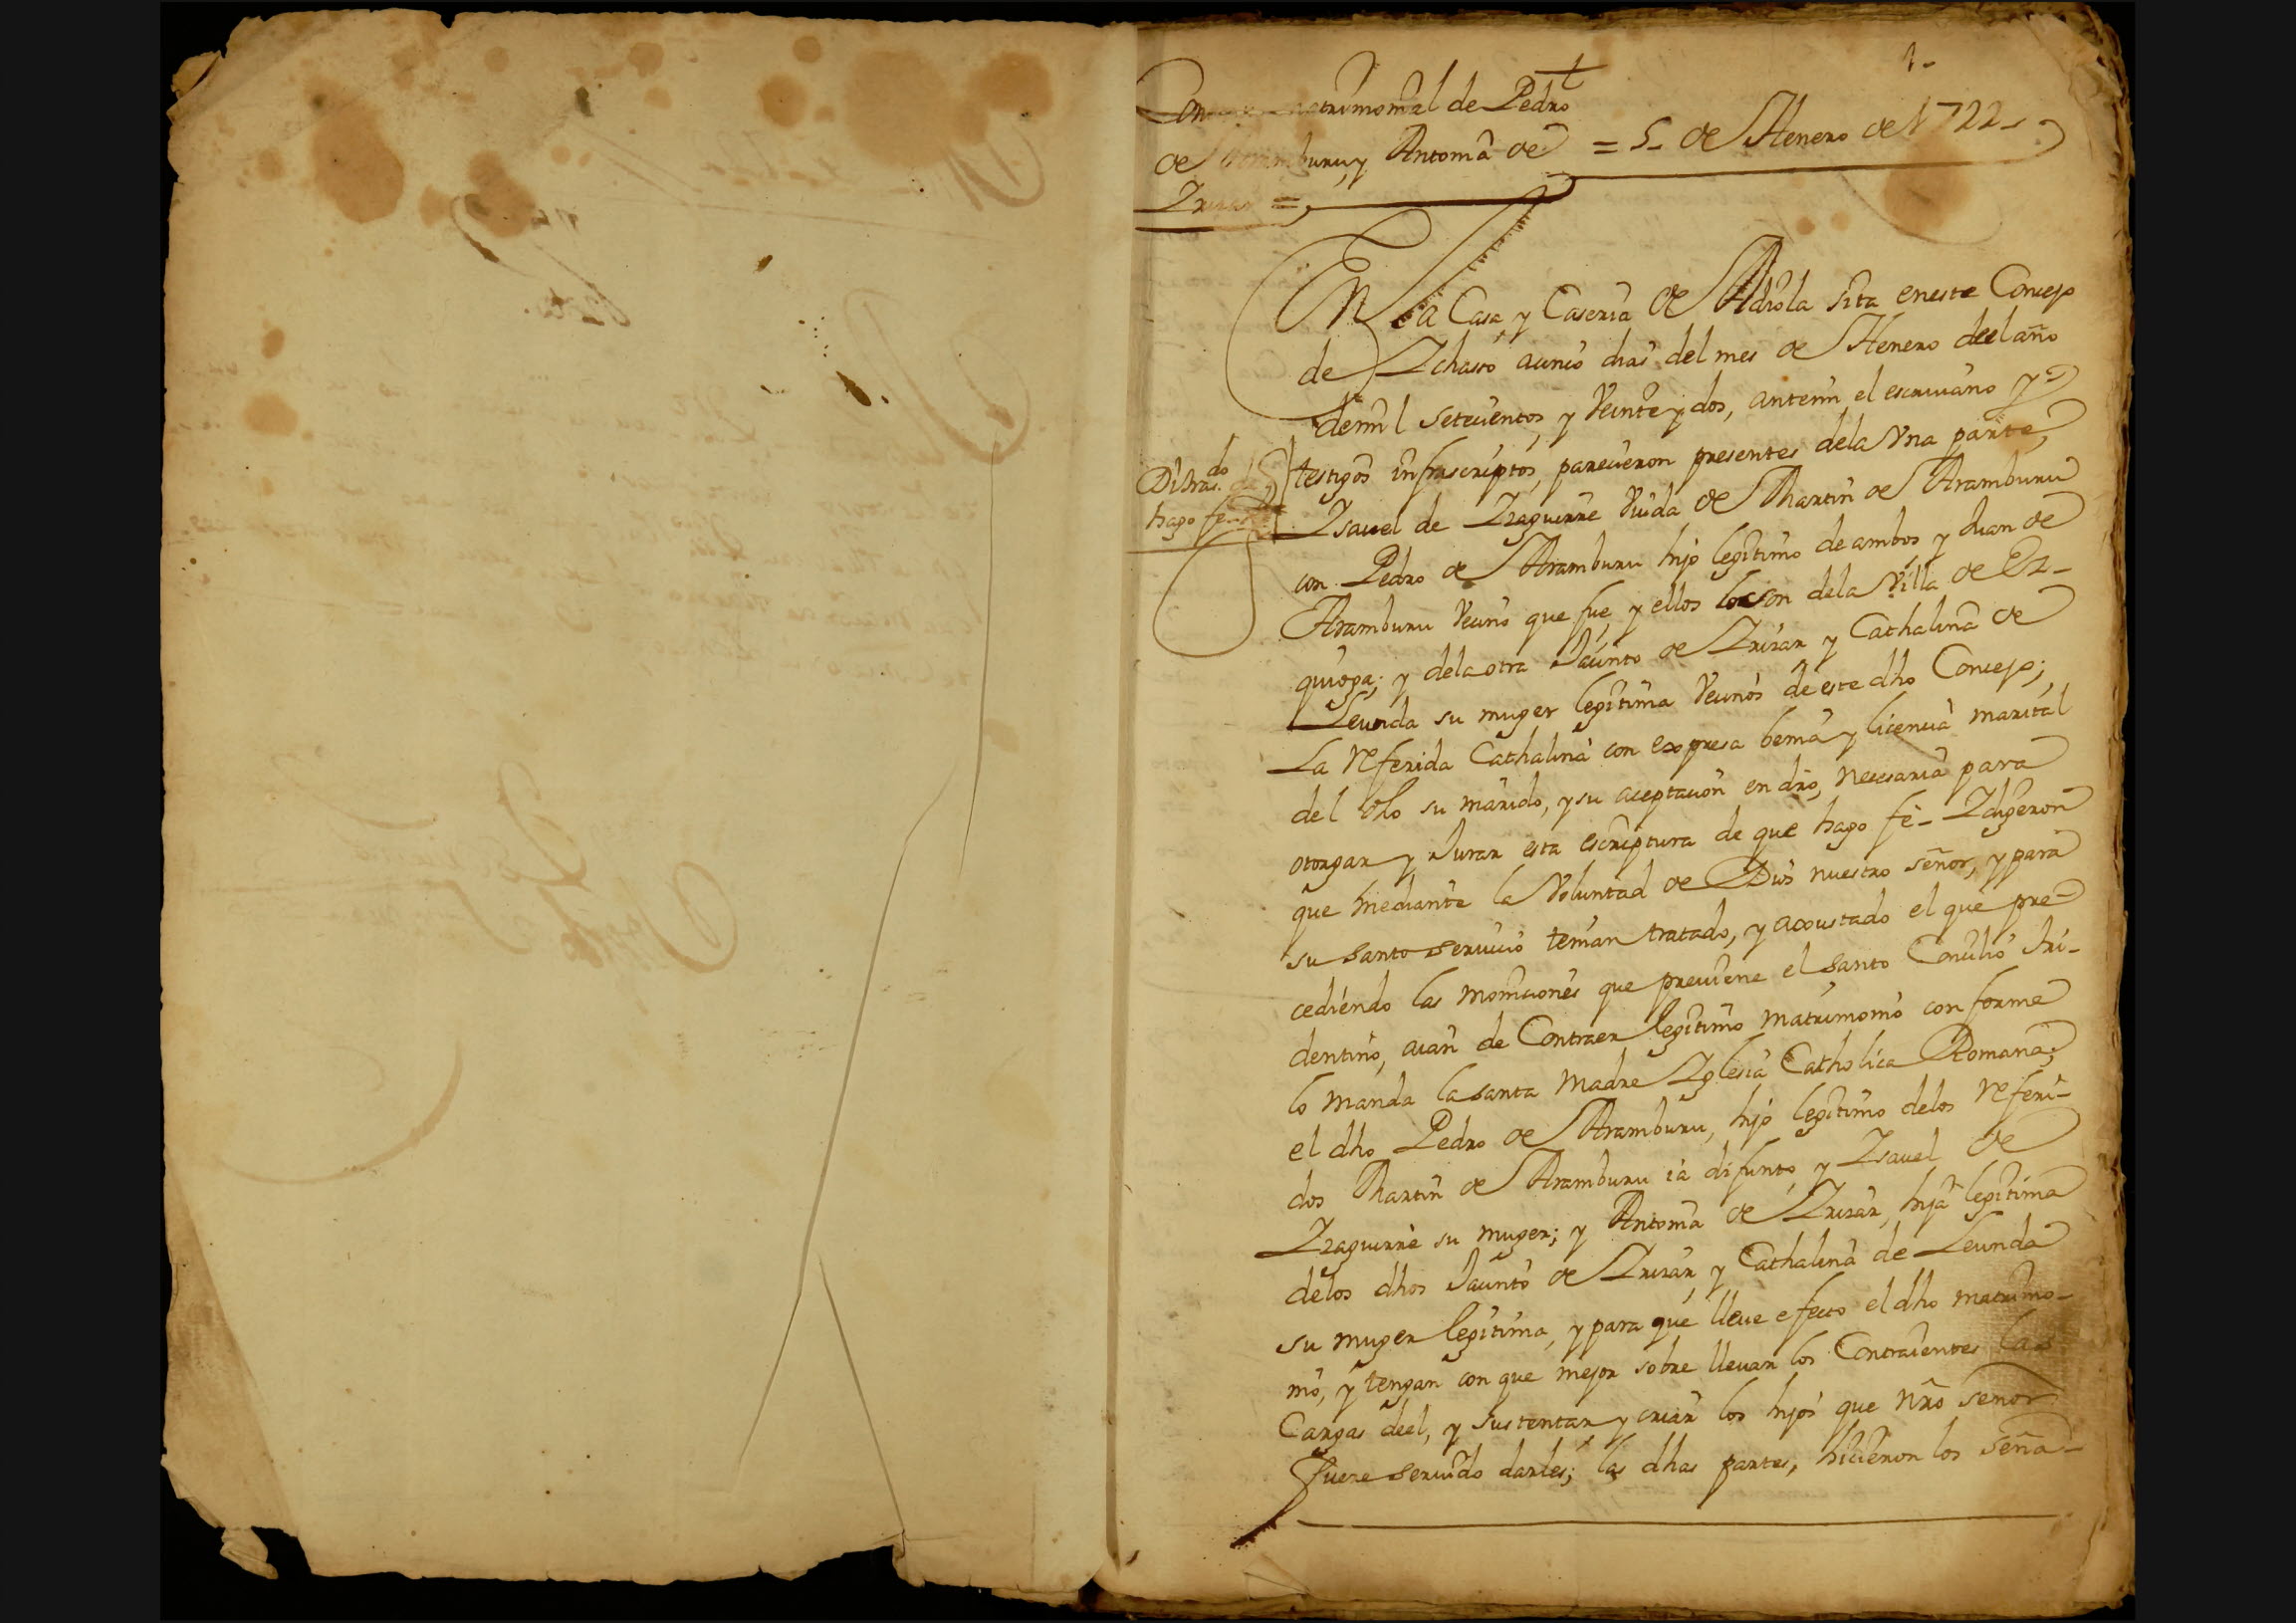 1-
matrimonial de Pedro
de Aramburu, y Antonia de = 5- de Henero de 1722-
Yrizar =
En la Casa, y Caseria de Adiola sita eneste Concejo
de Ychaso acinco dias del mes de Henero deel año
demil setecientos, y Veinte y dos, antemi el escriuano y
testigos infrascriptos, parecieron presentes dela Vna parte,
hago fe
Ysauel de Yzaguirre Viuda de Martin de Aramburu
con Pedro de Aramburu hijo legitimo de ambos y Juan de
Aramburu Vecino que fue, y ellos loson dela Villa de Ez-
quioga; y dela otra Jacinto de Yrizar y Cathalina de
Leunda su muger legitima Vecinos de este dho Concejo;
La referida Cathalina con expresa venia y licencia marital
del dho su marido, y su aceptacion en dro, necesaria para
otorgar y Jurar esta escriptura de que hago fè- Ydigeron
que mediante la Voluntad de Dios nuestro señor, y para
su santo seruicio tenian tratado, y axustado el que pre-
cediendo las moniciones que preuiene el santo Concilio tri-
dentino, aian de Contraer legitimo matrimonio conforme
lo manda la santa Madre Yglesia Catholica Romana;
el dho Pedro de Aramburu, hijo legitimo delos referi-
dos Martin de Aramburu ia difunto, y Ysauel de
Yzaguirre su muger; y Antonia de Yrizar, hija legitima
delos dhos Jacinto de Yrizar, y Cathalina de Leunda
su muger legitima, y para que lleue efecto el dho matrimo-
nio, y tengan con que mejor sobre lleuar los Contraientes las
Cargas deel, y sustentar y criar los hijos que nro señor
fuere seruido darles; las dhas partes, hicieron los seña-